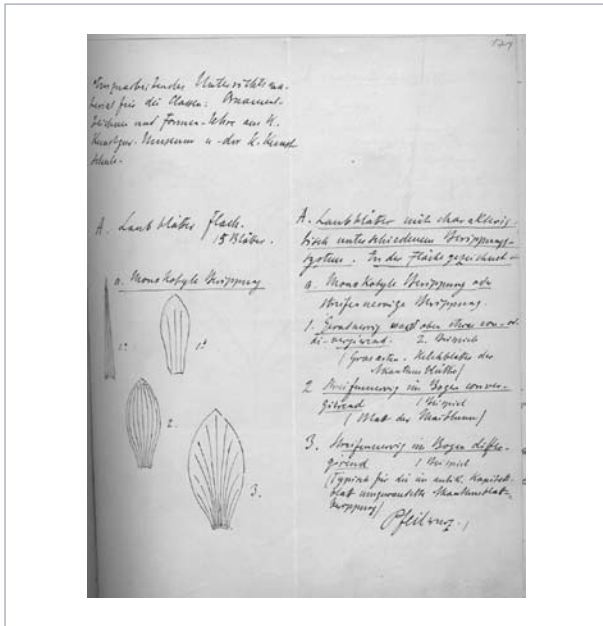 Unterrichtsma-
terial für die Classen: Ornament-
zeichnen und Formen-Lehre am K.
Kunstgew. Museum u. der K. Kunst
Schule.
A. Laubblätter Flach.
15 Blätter.
a. Monokotyle Berippung
1a
1b
2.
3.
A. Laubblätter mit charakteris-
tisch unterschiedenem Berippungs-
system. In der Fläche gezeichnet
a. Monokotyle Berippung oder
streifennervige Berippung.
1. Geradnervig oder etwas con- or
di-vergierend. 2. Beispiele
(Grasarten. Kelchblätter der
Akanthusblüthe)
2 Streifnervig im Bogen conver-
girend 1 Beispiel
(Blatt der Maiblume)
3. Streifennervig im Bogen
girend 1 Beispiel
(Typisch für die im antik. Kapitell-
blatt umgewandelte Akanthusblatt-
berippung)
Pfeilwurz.